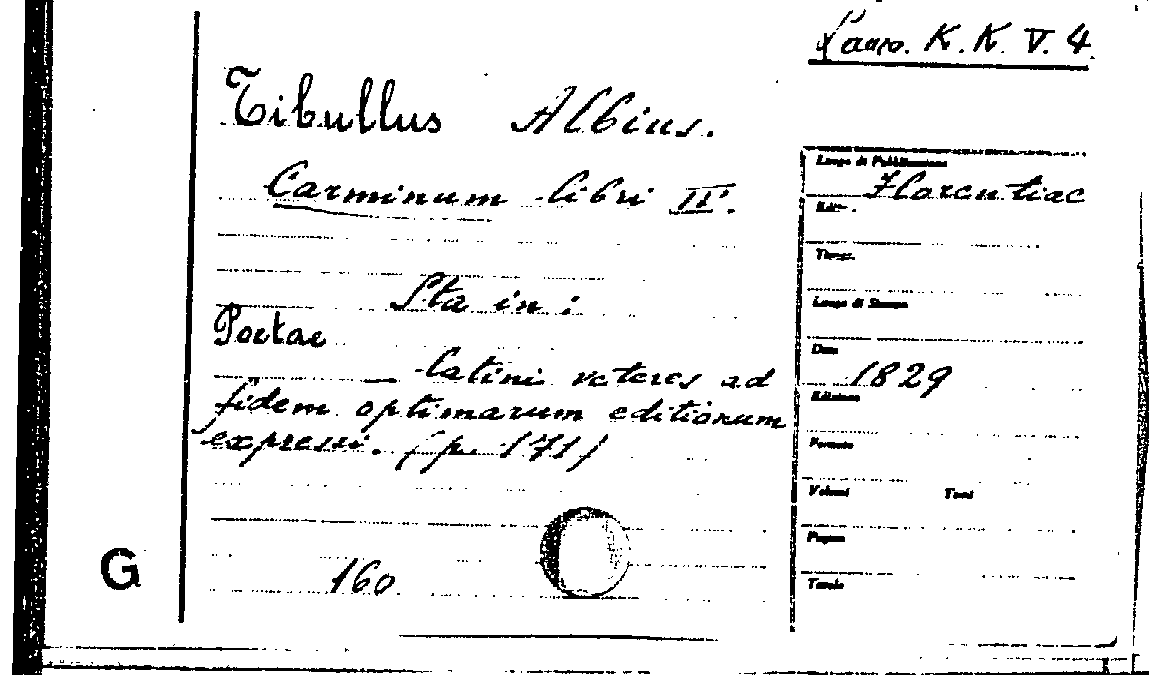 K. K. V. 4
Tibullus Albius.
Carminum libri IV.
Sta in:
Poetae
— latini veteres ad
fidem optimarum editionum
expressi. (p. 171)
160
G
Luogo di Pubblicazione
Florentiae
Edit.
Luogo di Stampa
Data
1829
Edizione
Formato
Volumi Tomi
Pagine
Tavole